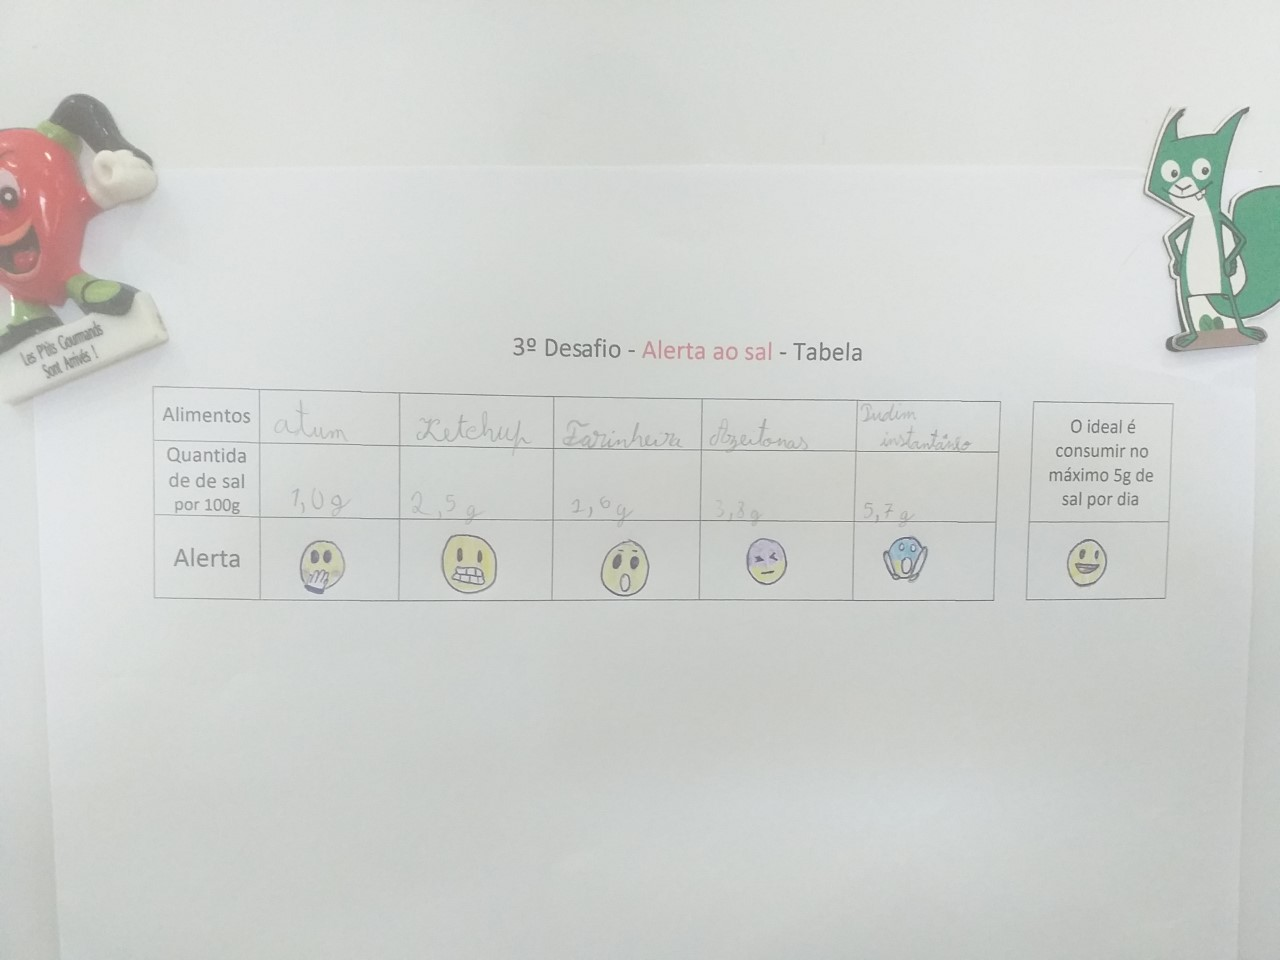 Les P'tits Gourmands
Sont Arrivés !
3º Desafio - Alerta ao sal - Tabela
Alimentos
atum
Ketchup
Farinheira
Azeitonas
Pudim
instantâneo
Quantida
de de sal
por 100g
1,0 g
2,5 g
1,6 g
3,8 g
5,7 g
Alerta
O ideal é
consumir no
máximo 5g de
sal por dia